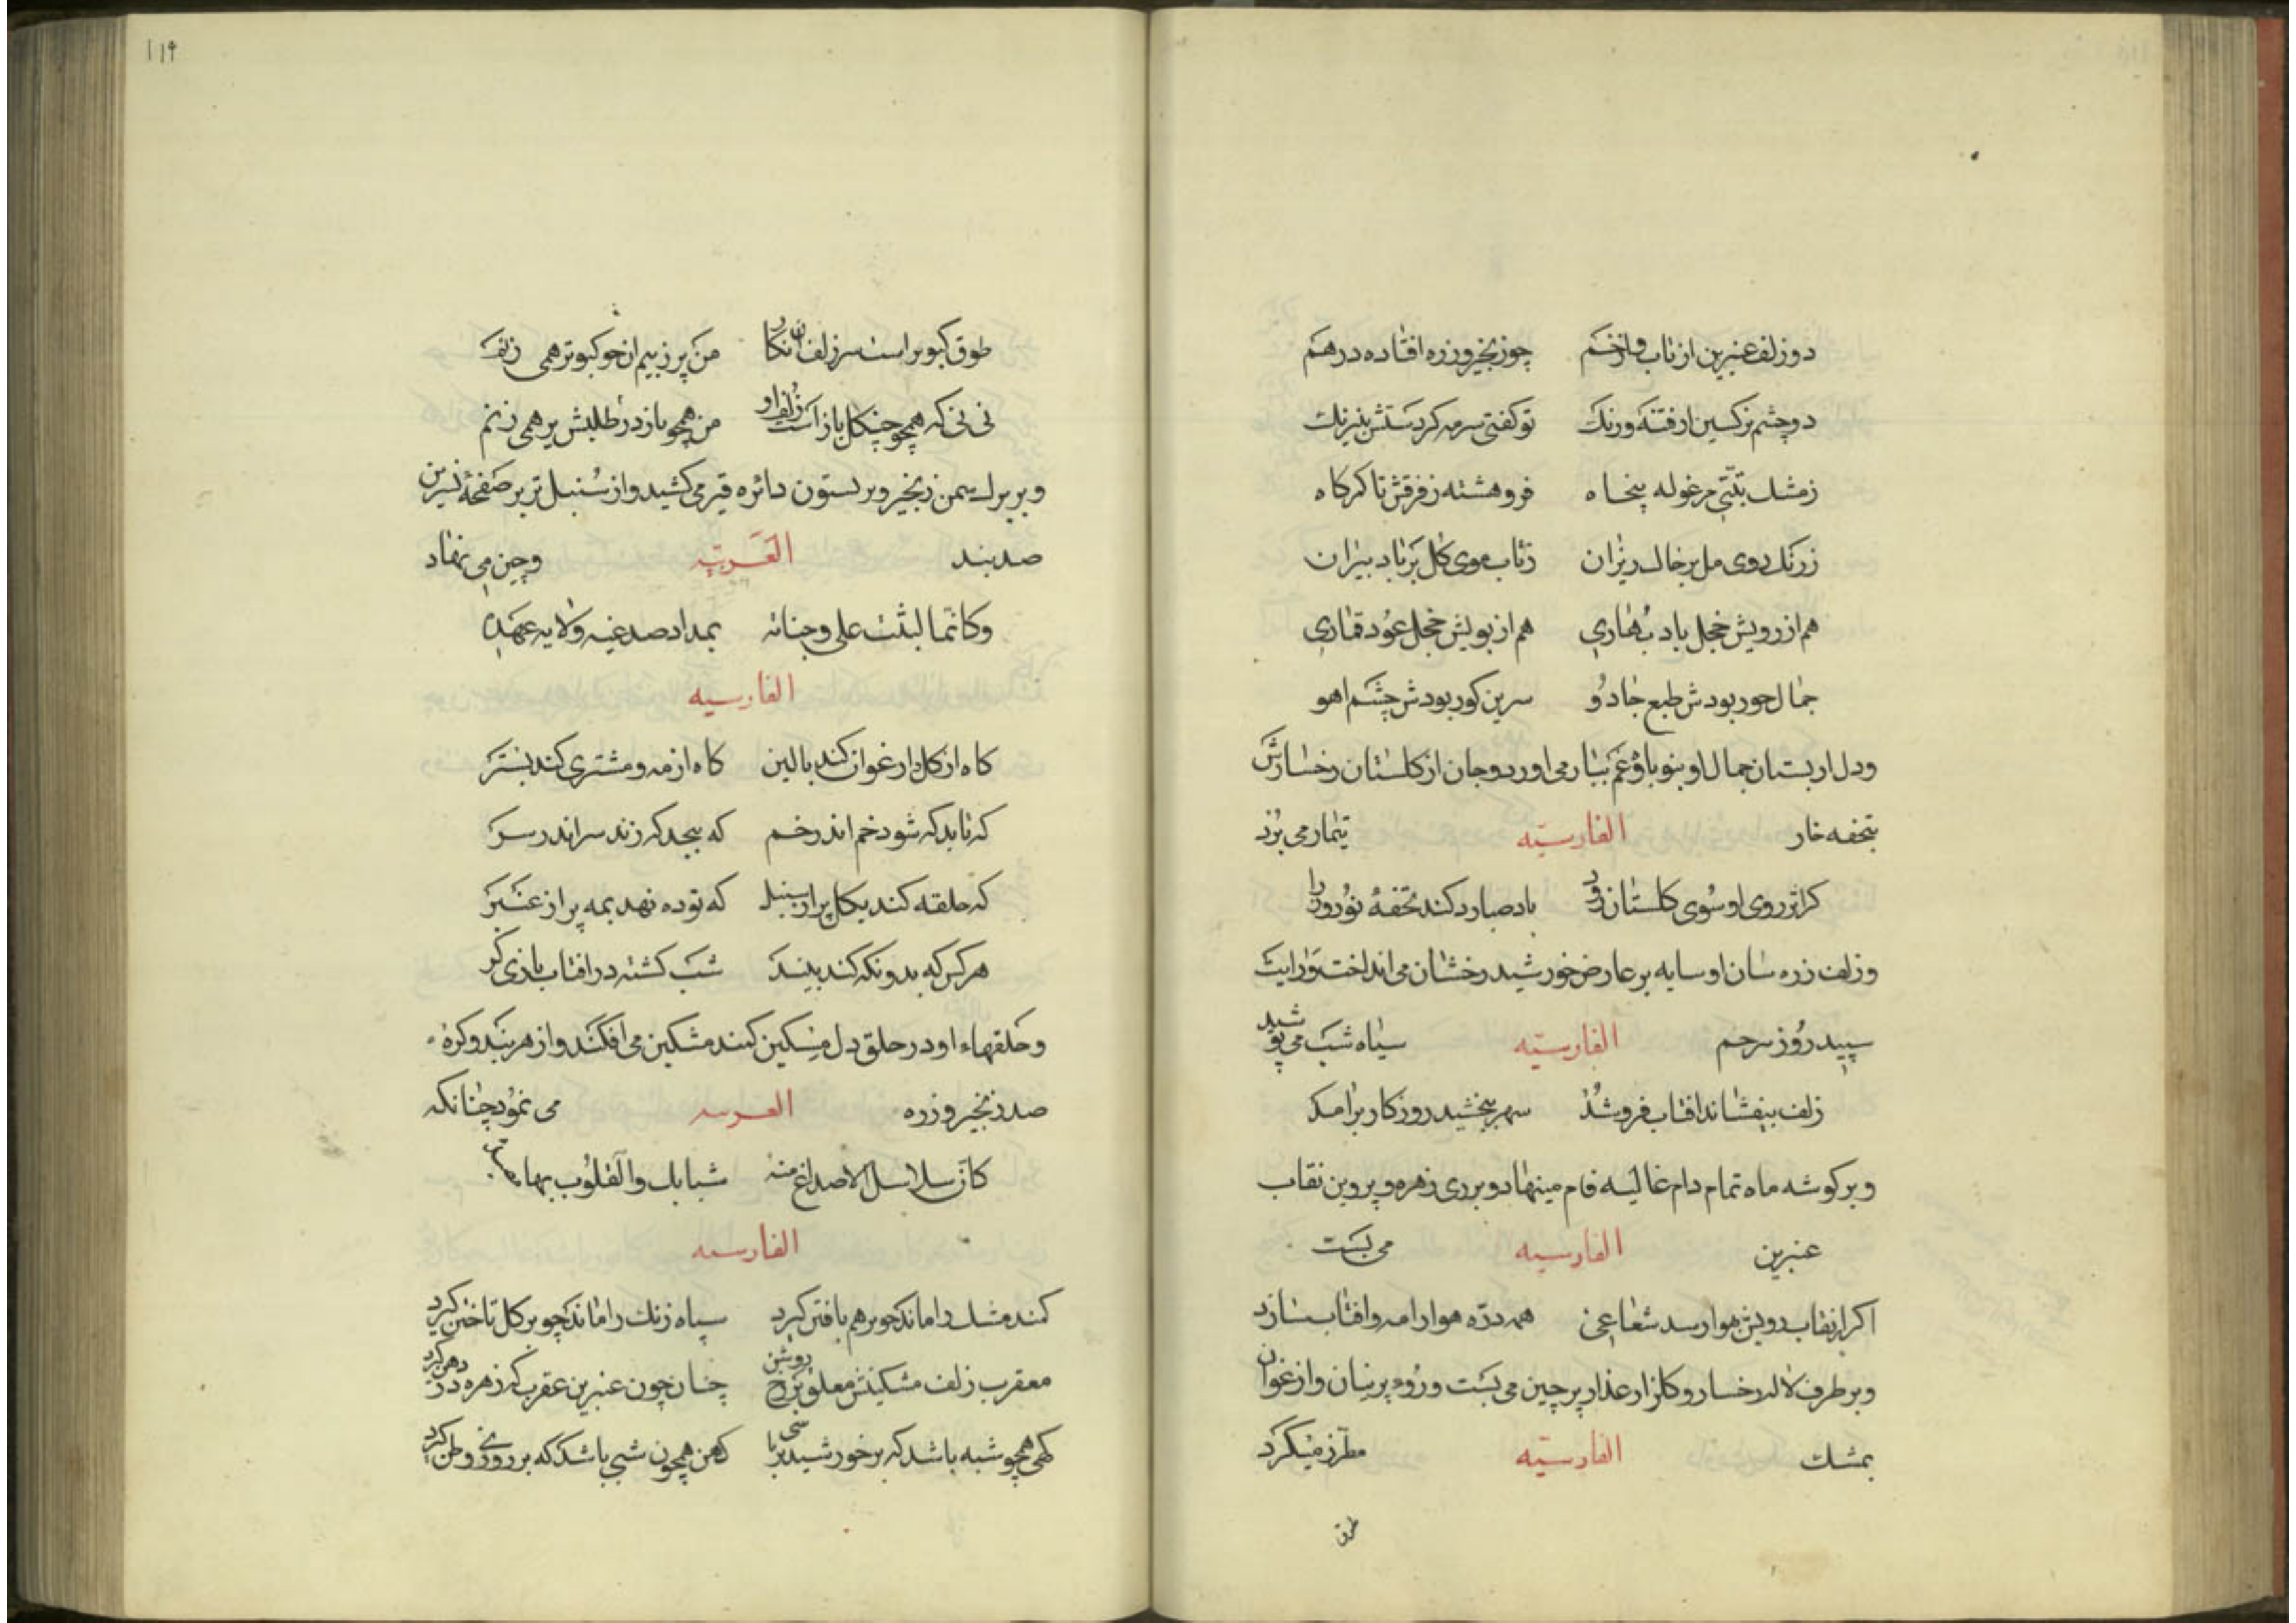 دو زلف عنبرین از تاب و از خم چو زنجیر و زره افتاده درهم
دو چشم نرکسین از فتنه و رنک تو کفتی سرمه کردستش بنیرنک
ز مشک تبتی مرغوله پنجاه فروهشته ز فرقش تا کرکاه
ز رنک روی مل بر خاک ریزان ز تاب موی کل بر باد بیزان
هم از رویش خجل باد بهاری هم از بویش خجل عود قماری
جمال حور بودش طبع جادو سرین کور بودش چشم اهو
و دل از بستان جمال او بنوباوۀ غم بیمار می اورد و جان از کلستان رخسارش
بتحفه خار الفارسیّه تیمار می برد
کر اثر روی او سوی کلستان رود باد صبا رد کند تحفۀ نوروز را
و زلف زره سان او سایه بر عارض خورشید رخشان می انداخت و رایت
سپید روز بپرچم الفارسیّه سیاه شب می پوشید
زلف بیفشاند افتاب فروشد ببخشید روزکار برامد
و بر کوشه ماه تمام دام غالیه فام مینهاد و بر روی زهره و پروین نقاب
عنبرین الفارسیه می بست
اکر از نقاب رویش بهوا رسد شعاعی همه ذرّه هوا را مه و افتاب سازد
و بر طرف لاله رخسار و کلزار عذار پرچین می بست و روی پرنیان و ارغوان
بمشک الفارسیّه مطرّز میکرد
طوق کبوتر است سر زلف ان نکار من پر ز بیم ان چو کبوتر همی زنم
نی نی که همچو چنکل باز است زلف او من همچو باز در طلبش پر همی زنم
و بر برک سمن زنجیر و بر نستون دائره قیر می کشید و از سنبل تر بر صفحۀ نسرین
صد بند العربیه و چین می نهاد
وکانّما لبثت علی وجناته بمداد صدغیه ولایه عهده
الفارسیه
کاه از کل و ارغوان کند بالین کاه از مه و مشتری کند بستر
که تابد که شود خم اندر خم که پیچد که زند سر اندر سر
که حلقه کند بکل بر از سنبل که توده نهد بمه بر از عنبر
هر کس که بدو نکه کند بیند شب کشته در افتاب بازی کر
و حلقهاء او در حلق دل مسکین کمند مشکین می افکند و از هر بند و کره
صد زنجیر و زره العربیه می نمود چنانکه
کان سلاسل الاصداغ منه شبابک والقلوب بها
الفارسیه
کمند مشک را ماند چو بر هم بافتن کیرد سپاه زنک را ماند چو بر کل تاختن کیرد
معقرب زلف مشکینش معلق بر رخ روشن چنان چون عنبرین عقرب که زهره در دهن کیرد
کهی همچو شبه باشد که بر خورشید بر پاشی کهی همچون شبی باشد که بر روزی وطن کیرد